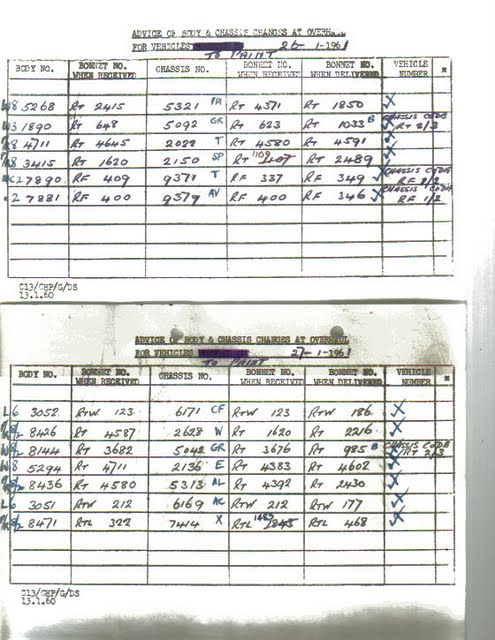 ADVICE OF BODY & CHASSIS CHANGES AT OVERHAUL
FOR VEHICLES TO PAINT 26-1-1961
BODY NO. BONNET NO. WHEN RECEIVED CHASSIS NO. BONNET NO. WHEN RECEIVED BONNET NO. WHEN DELIVERED VEHICLE NUMBER
W8 5268 RT 2415 5321 RT 4371 RT 1850 X
W3 1890 RT 648 5092 GR RT 623 RT 1033 B CHASSIS CODE RT 2/3
4711 RT 4645 2022 T RT 4580 RT 4591 X
3415 RT 1620 2150 SP RT 1107 RT 2489
7890 RF 409 9371 T RF 337 RF 349 CHASSIS CODE RF 2/2
7881 RF 400 9379 AV RF 400 RF 346 CHASSIS CODE RF 1/2
C13/CHP/G/DS
13.1.60
ADVICE OF BODY & CHASSIS CHANGES AT OVERHAUL
FOR VEHICLES TO PAINT 27-1-1961
BODY NO. BONNET NO. WHEN RECEIVED CHASSIS NO. BONNET NO. WHEN RECEIVED BONNET NO. WHEN DELIVERED VEHICLE NUMBER
L6 3052 RTW 123 6171 CF RTW 123 RTW 186 X
8426 RT 4587 2628 W RT 1620 RT 2216 X
8144 RT 3682 5042 GR RT 3676 RT 985 B CHASSIS CODE RT 2/3
W8 5294 RT 4711 2136 E RT 4383 RT 4602 X
8436 RT 4580 5313 AL RT 4392 RT 2430 X
L6 3051 RTW 212 6169 AC RTW 212 RTW 177 X
8471 RTL 322 7414 X RTL RTL 468 X
C13/CHP/G/DS
13.1.60